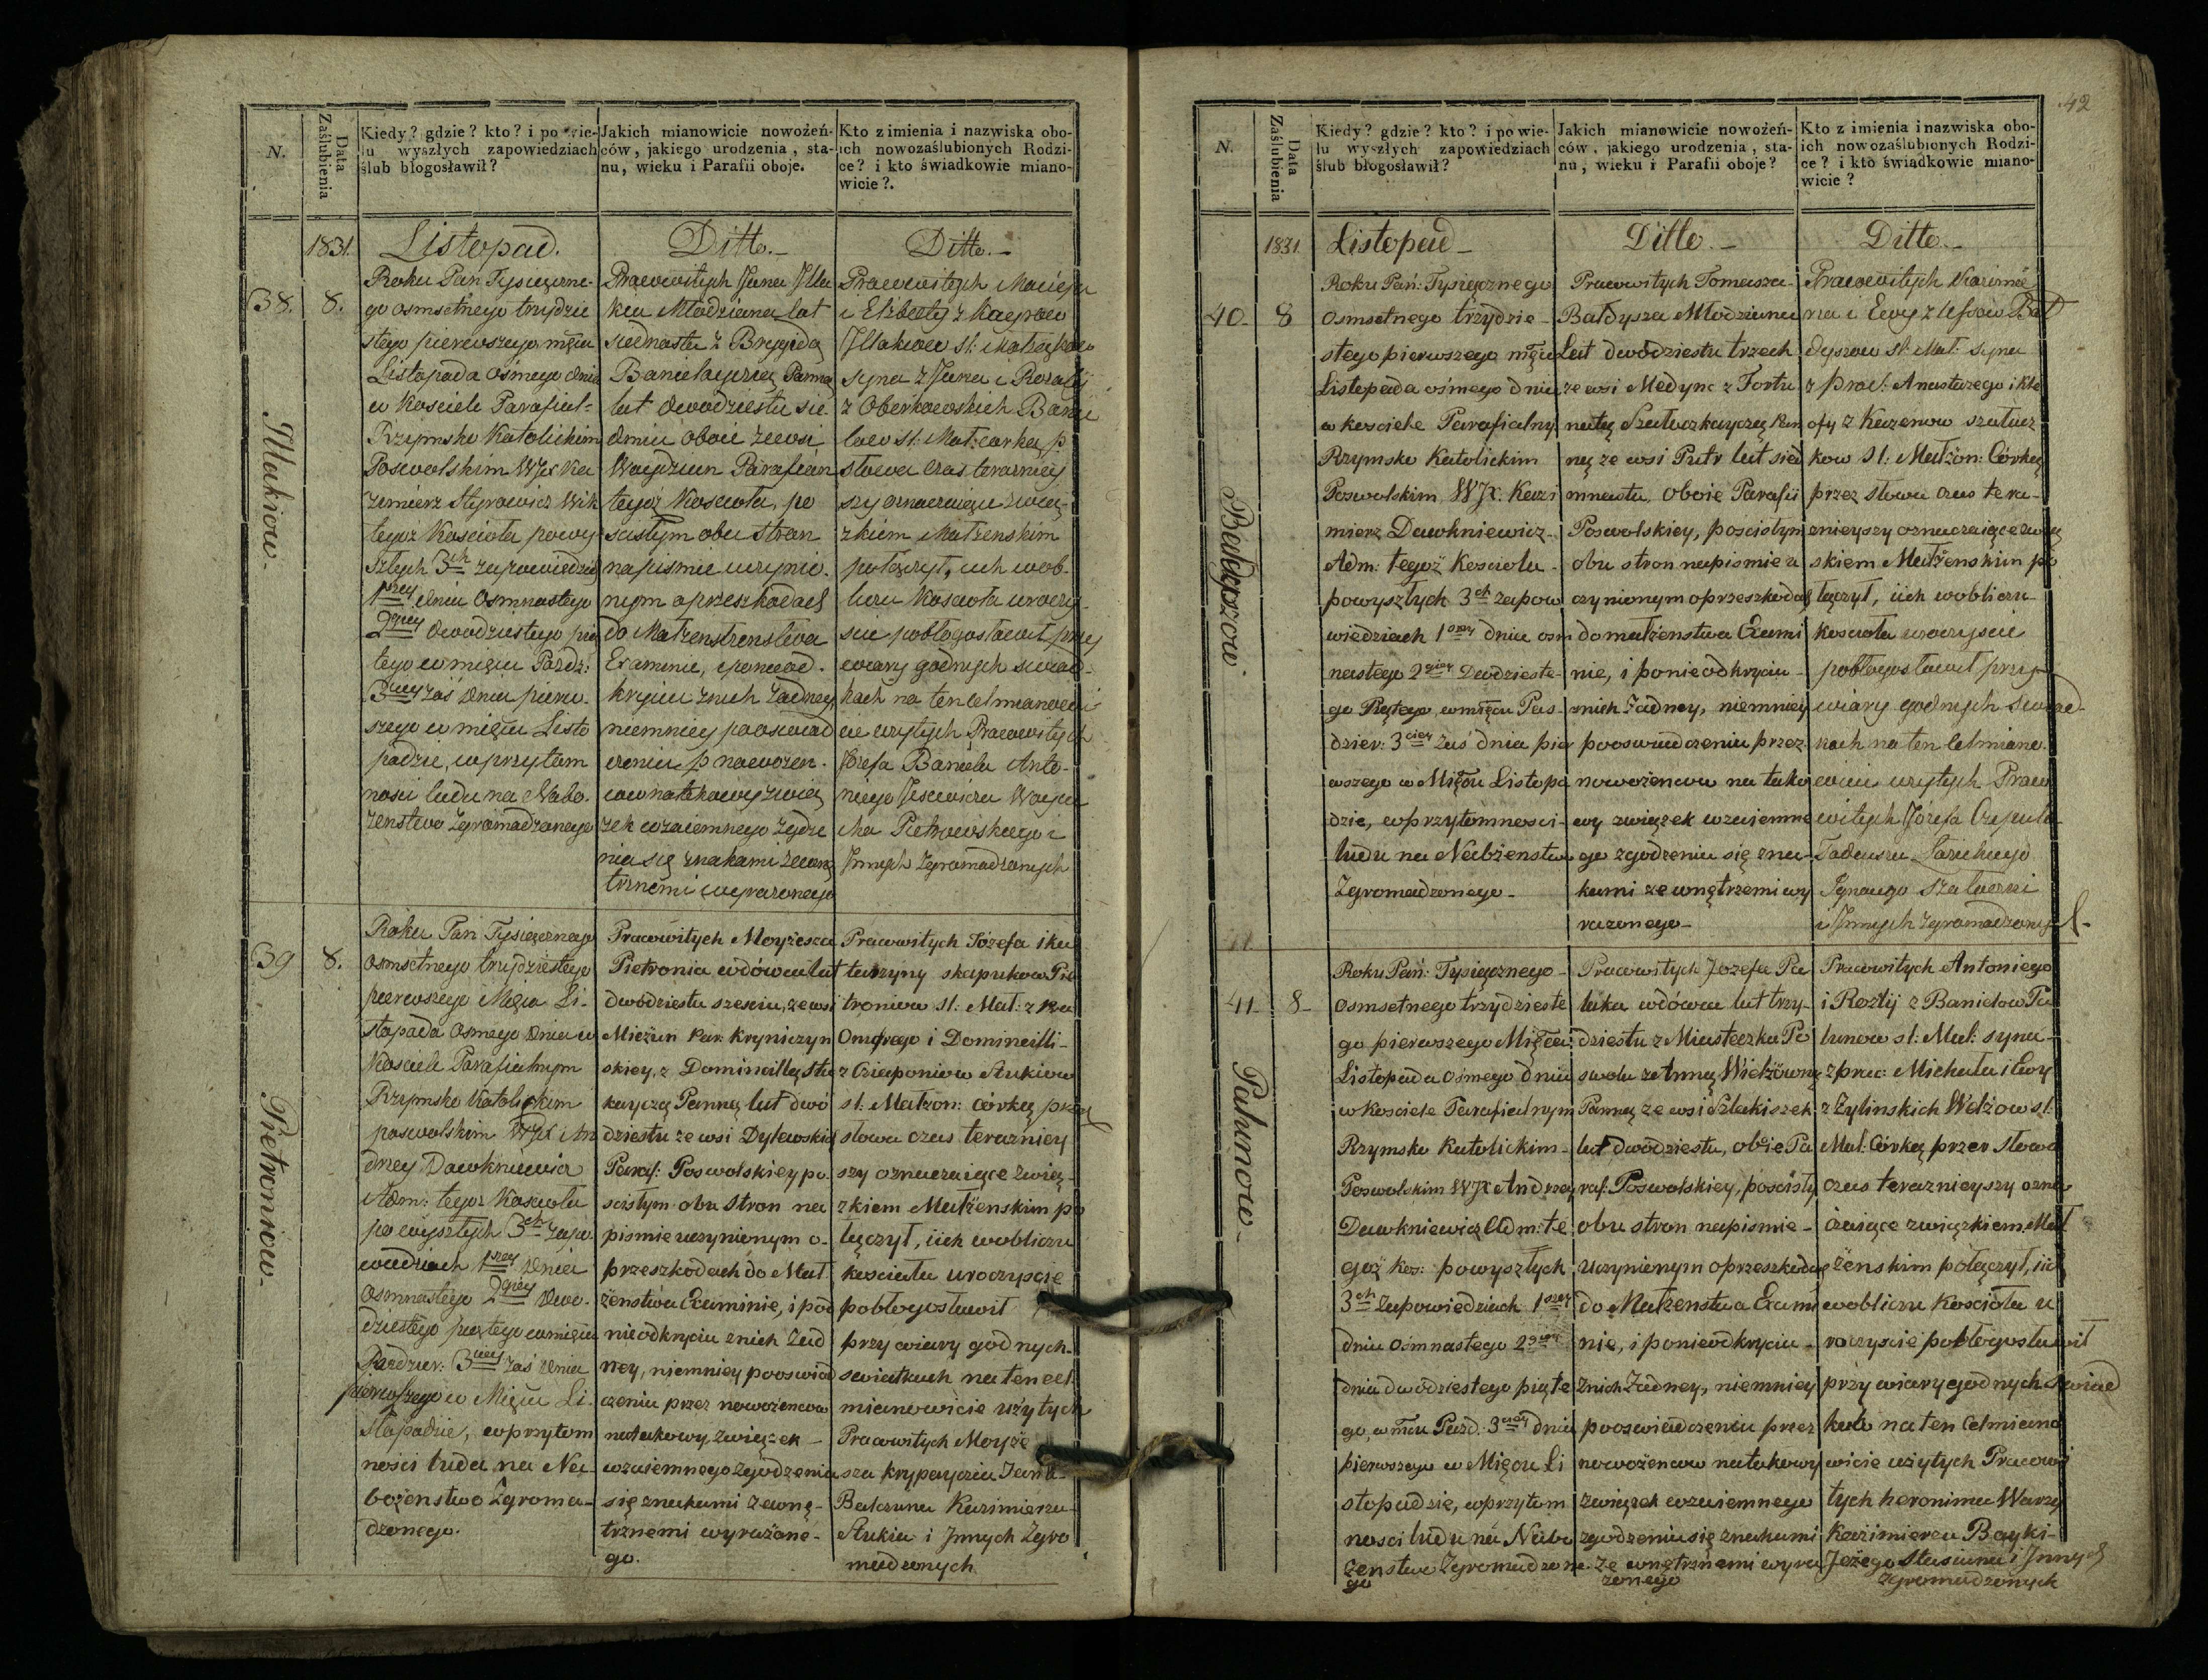 N.
Data
Zaślubienia
Kiedy? gdzie? kto? i po wie-
lu wyszłych zapowiedziach
ślub błogosławił?
Jakich mianowicie nowożeń-
ców, jakiego urodzenia, sta-
nu, wieku i Parafii oboje.
Kto z imienia i nazwiska obo-
ich nowozaślubionych Rodzi-
ce? i kto świadkowie miano-
wicie?.
1831.
Listopad.
Ditto.-
Ditto.-
38.
8.
Roku Pan Tysiączne-
go osmsetnego trzydzie
stego pierwszego mięca
Listopada ósmego dnia
w Kosciele Parafial=
Rzymsko Katolickim
Poswolskim WJX Ka
zimierz Styrowicz Wik
tegoż Koscioła powy
szłych 3ch zapowiedzia
1szey dnia Osmnastego
2giey dwodziestego pią
tego w mięcu Pazdz:
3ciey zaś dnia pierw.
szego w mięcu Listo
padzie, w przytom
nosci ludu na Nabo.
żenstwo zgromadzonego
Pracowitych Jana
kia Młodziana lat
z Brygidą
Panną
lat dwodziestu sie
dmiu oboie zewsi
Parafian
tegoż Koscioła, po
scisłym obu stron
napismie uczynio.
nym oprzeszkodach
do
Examinie, iponieod.
kryciu znich żadney
niemniey pooswiad
czeniu p nowożen.
cow natakowy zwią
zek wzaiemnego zgodze
nia się znakami zewną
trznemi wyrażonego
Pracowitych Macieja
i Elżbiety z
st: Małżąkow
syna z Jana i Rozalij
z
st: Mał: corką p
słowa czas terazniey
szy oznaczaiące zwią-
zkiem Małżenskim
połączył, iich wob-
liczu Kosciola uroczy-
scie pobłogosławił przy
wiary godnych swiad-
kach na ten cel mianowi
cie użytych Pracowitych
Józefa Baniela Anto-
niego
cha Pietrowskiego i
Jnnych zgromadzonych
39
8.
Pietroniow-
Roku Pan Tysiącznego
osmsetnego trzydziestego
pierwszego Mięca Li-
stopada Osmego dnia w
Kosciele Parafialnym
Rzymsko Katolickim
poswolskim WJX An
drzey Dawkniewicz
Adm: tegoż Kosciola
powyszłych 3ch zapo
wiedziach 1szey dnia
osmnastego 2giey dwo-
dziestego piątego wmięcu
Pazdzier: 3ciey zaś dnia
pierwszego w Mięcu Li-
stopadzie, wprzytom
nosci ludu na Na-
bożenstwo Zgroma-
dzonego.
Pracowitych Moyżesza
Pietronia wdówca lat
dwodziestu szesciu, ze wsi
Mieżun Par: Kryniczyn
skiey, z Domincillą Stu
kayczą Panną lat dwó
dziestu ze wsi
Paraf: Poswolskiey po.
scisłym obu Stron na
pismie uczynionym o-
przeszkodach do Mał
żeństwa Examinie, i po
nieodkryciu znich żad
ney, niemniey pooswiad
czeniu przez nowożencow
natakowy związek -
wzaiemnego zgodzenia
się znakami zewnę-
trznemi wyrażone-
go.
Pracowitych Józefa i ka
tarzyny Pie
troniow st: Mał:
Onufrego i Domincilli-
z Stukiow
st: Małzon: córką przez
słowa czas terazniey
szy oznaczaiące zwią-
zkiem Małżenskim po
łączył, iich wobliczu
kosciola uroczyscie
pobłogosławił
przy wiary godnych-
swiatkach na ten cel
mianowicie użytych
Pracowitych Moyże
sza Jana-
Kazimierza
Stukia i Jnnych Zgro
madzonych
42
N.
Data
Zaślubienia
Kiedy? gdzie? kto? i po wie-
lu wyszłych zapowiedziach
ślub błogosławił?
Jakich mianowicie nowożeń-
ców, jakiego urodzenia, sta-
nu, wieku i Parafii oboje?
Kto z imienia i nazwiska obo-
ich nowozaślubionych Rodzi-
ce? i kto świadkowie miano-
wicie?
1831.
Listopad-
Ditto.-
Ditto.-
40-
8
Roku Pań: Tysiącznego
osmsetnego trzydzie-
stego pierwszego mięca
Listopada ośmego dnia
w kosciele Parafialny
Rzymsko Katolickim
Poswolskim WJX. Kazi
mierz Dawkniewicz-
Adm: tegoż Kosciola-
powyszłych 3ch zapow
wiedziach 1szey dnia osm
nastego 2giey Dwodzieste-
go Piątego wmięcu Paz-
dzier: 3ciey zaś dnia pier
wszego w Mięcu Listopa
dzie, wprzytomnosci-
ludu na Nabżenstwo
Zgromadzonego-
Pracowitych Tomasza-
Bałdysza Młodziana
Lat dwódziestu trzech
ze wsi Medyne z Fortu
natą Pan
ną ze wsi Putr lat sied
mnastu, oboie Parafii
Poswolskiey, poscisłym
obu stron napismie u
czynionym oprzeszkodach
domałżenstwa Exami
nie, i ponieodkryciu-
znich żadney, niemniey
pooswiadczeniu przez
nowożencow na tako
wy związek wzaiemne
go zgodzeniu się zna-
kami zewnętrznemi wy
rażonego-
Pracowitych Kazimie
rza i Ewy z Bał
dyszow st: Mał: syna
z prac: Anastazego i
z Kazenow szalucz
kow st: Małzon: Córką
przez słowa czas tera-
znieyszy oznaczaiące zwią
skiem Małżenskim po
łączył, iich wobliczu-
kosciola uroczyscie
pobłogosławił przy-
wiary godnych swiad-
kach na ten cel miano.
wicie użytych Praco
witych Józefa
Tadeusza
Ignacego
i Jnnych zgromadzonych-
41-
8-
Roku Pań: Tysiącznego-
osmsetnego trzydzieste
go pierwszego Mięca
Listopada ośmego dnia
w kosciele Parafialnym
Rzymsko Katolickim-
Poswolskim WJX Andrzey
Dawkniewicz Adm: te
goż kos: powyszłych
3ch zapowiedziach 1szey
dnia ośmnastego 2giey
dnia dwodziestego piąte
go, w mcu Pazd. 3ciey dnia
pierwszego w Mięcu Li
stopadzie, wprzytom
nosci ludu na Nabo
żenstwo Zgromadzone
go
Pracowitych Jozefa Pa
luka wdówca lat trzy-
dziestu z Miasteczka Po
swola ze Anną
Panną ze wsi
lat dwódziestu, oboie Pa
raf: Poswolskiey, posciśły
obu stron napismie-
uczynionym oprzeszkodach
do Małżenstwa Exami
nie, i ponieodkryciu-
znich żadney, niemniey
pooswiadczeniu przez
nowożencow natakowy
związek wzaiemnego
zgodzeniu się znakami
ze wnętrznemi wyra
żonego
Pracowitych Antoniego
i Rozlij z Banielow
st: Mał: syna-
z prac: Michała i Ewy
z Żylinskich st:
Mał: Córką przez słowa
czas terazznieyszy ozna
czaiące związkiem Mał
żenskim połączył, iich
wobliczu Kosciola u
roczyscie pobłogosławił
przy wiary godnych swiad
kach na ten cel miano
wicie użytych Pracowi
tych heronima
Kazimierza
i Jnnych
zgromadzonych